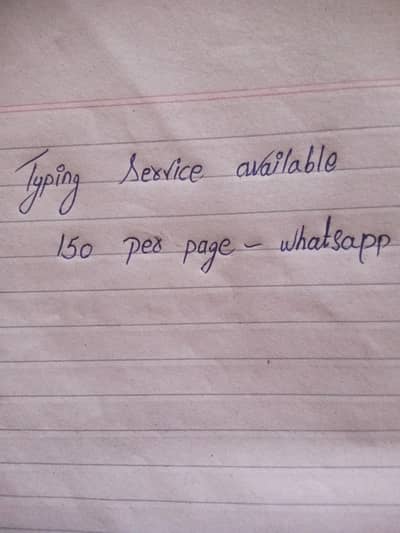 Typing Service available
150 per page - whatsapp